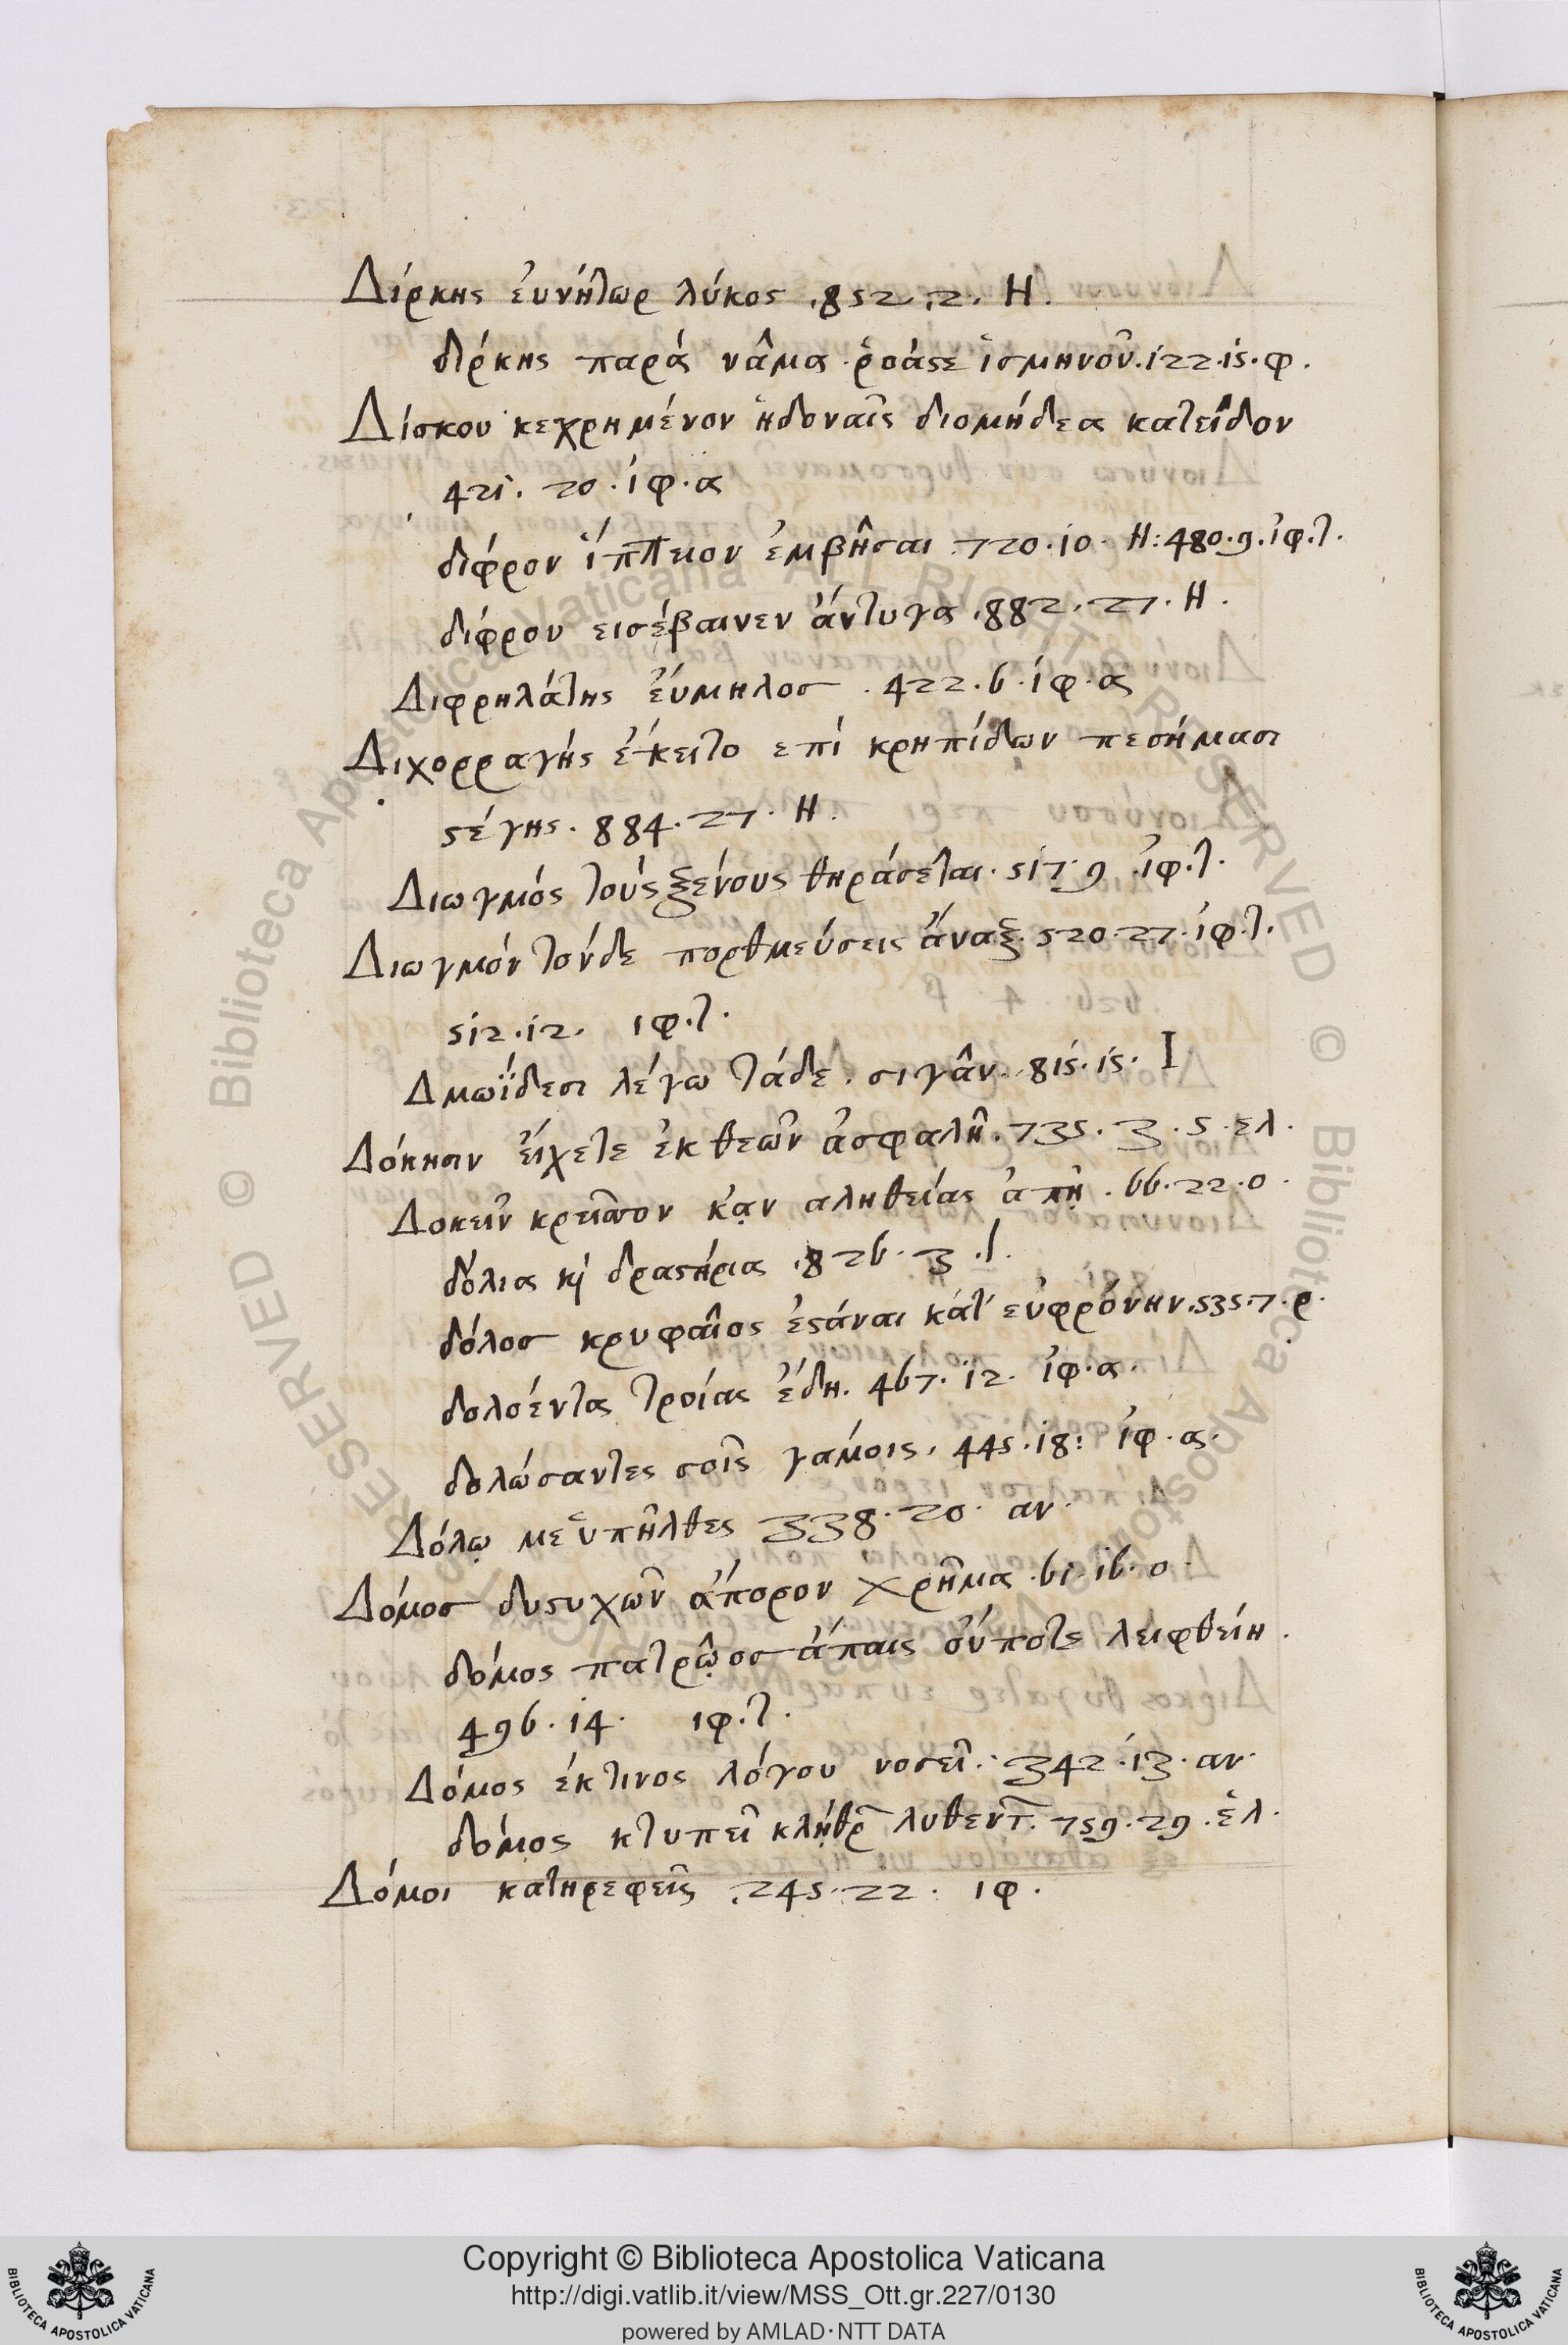 Δίρκης ἐυνήτωρ λύκος .852.2. Η.
δίρκης παρά νᾶμα ῥοάςε ἰσμηνοῦ.122.15.φ.
Δίσκου κεχρημένον ἡδοναῖς διομήδεα κατεῖδον
421. 20. ἰφ.α
δίφρον ἵππειον ἐμβῆσαι .720.10. Η: 480.9.ἰφ.τ.
δίφρου εισέβαινεν ἄντυγα .882.27. Η.
Διφρηλάτης ἐύμηλοσ .422.6.ἰφ.α
Διχορραγής ἔκειτο επί κρηπίδων πεσήμασι
ςέγης. 884.27. Η.
Διωγμός τούς ξενους θηράσεται. 517.9 .ἰφ.τ.
Διωγμόν τόνδε πορθμεύσεις ἄναξ. 520.27.ἰφ.τ.
512.12. ιφ.τ.
Δμωΐδεσι λέγω τάδε. σιγᾶν. 815.15. Ι
Δόκησιν εἴχετε ἐκ θεῶν ἀσφαλῆ. 735. 3. 5. ελ.
Δοκεῖν κρεῖσσον κᾀν αληθείας ἀπῇ. 66.22.ο.
δόλια κὶ δραςήρια .826. 3 .Ι.
δόλοσ κρυφαῖος ἐςάναι κάτ' εὐφρόνην.535.7.ρ.
δολοέντα τροίας ἔδη. 467. 12. ἰφ.α.
δολώσαντες σοῖς γάμοις. 445.18: ἰφ.α.
Δόλῳ με ὑπῆλθες 338.20. αν.
Δόμοσ δυςυχῶν ἄπορον χρῆμα .61.16.ο.
δόμος πατρῷοσ ἄπαις οὔποτε λειφθείη.
496.14. ιφ.τ.
Δόμος ἐκ τινος λόγου νοσεῖ. 342.13.αν.
δόμος κτυπεῖ κλῄθρ λυθεντ. 759.29.ἑλ.
Δόμοι κατηρεφεῖς .245.22. ιφ.
Copyright © Biblioteca Apostolica Vaticana
http://digi.vatlib.it/view/MSS_Ott.gr.227/0130
powered by AMLAD·NTT DATA